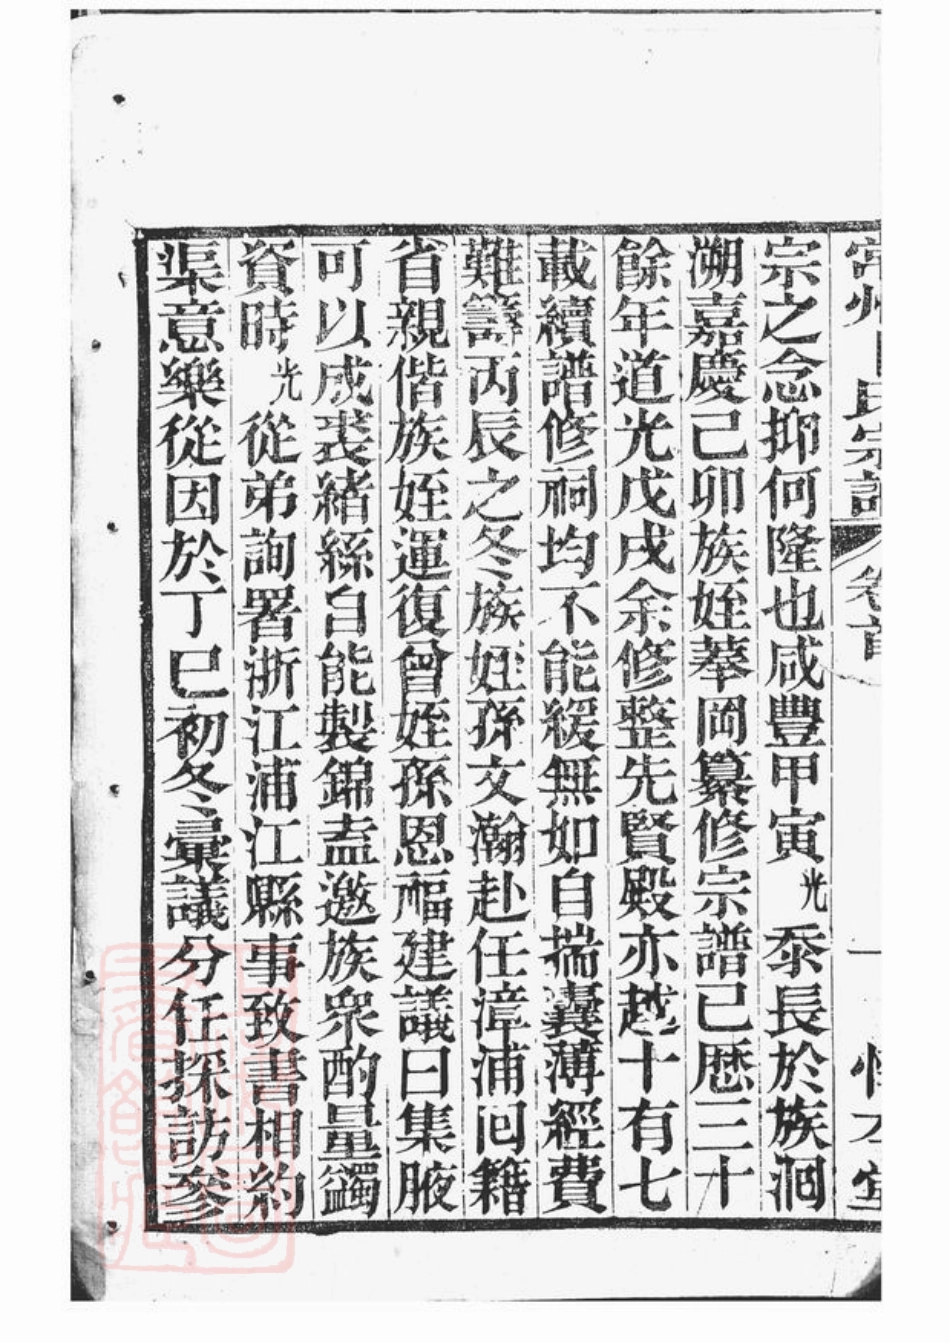 宗之念抑何隆也咸豐甲寅光忝長於族洄
溯嘉慶己卯族姪葦岡纂修宗譜已歷三十
餘年道光戊戌余修整先賢殿亦越十有七
載續譜修祠均不能緩無如自揣囊薄經費
難籌丙辰之冬族姪孫文瀚赴任漳浦囘籍
省親偕族姪運復曾姪孫恩福建議曰集腋
可以成裘緒絲自能製錦盍邀族衆酌量蠲
資時光從弟詢署浙江浦江縣事致書相約
渠意樂從因於丁巳初冬彙議分任採訪參